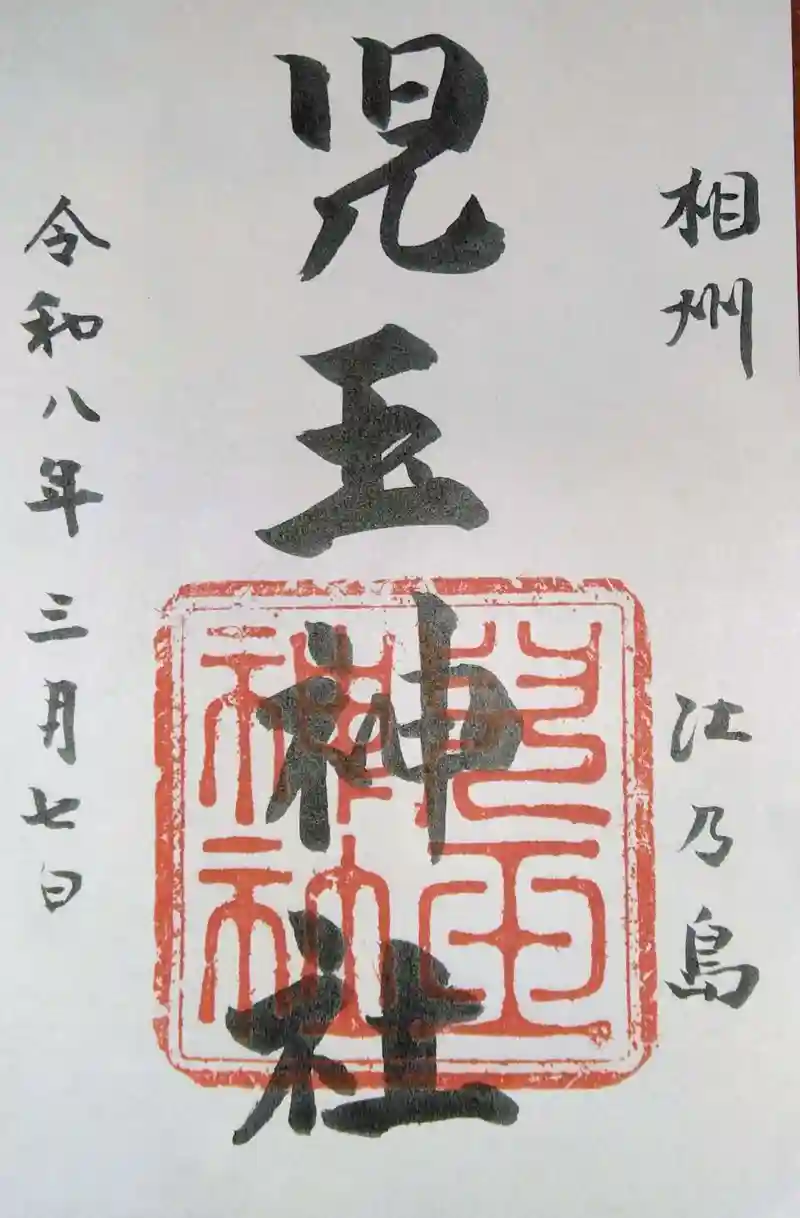 相州 江乃島
児玉神社
児玉神社
令和八年三月七日